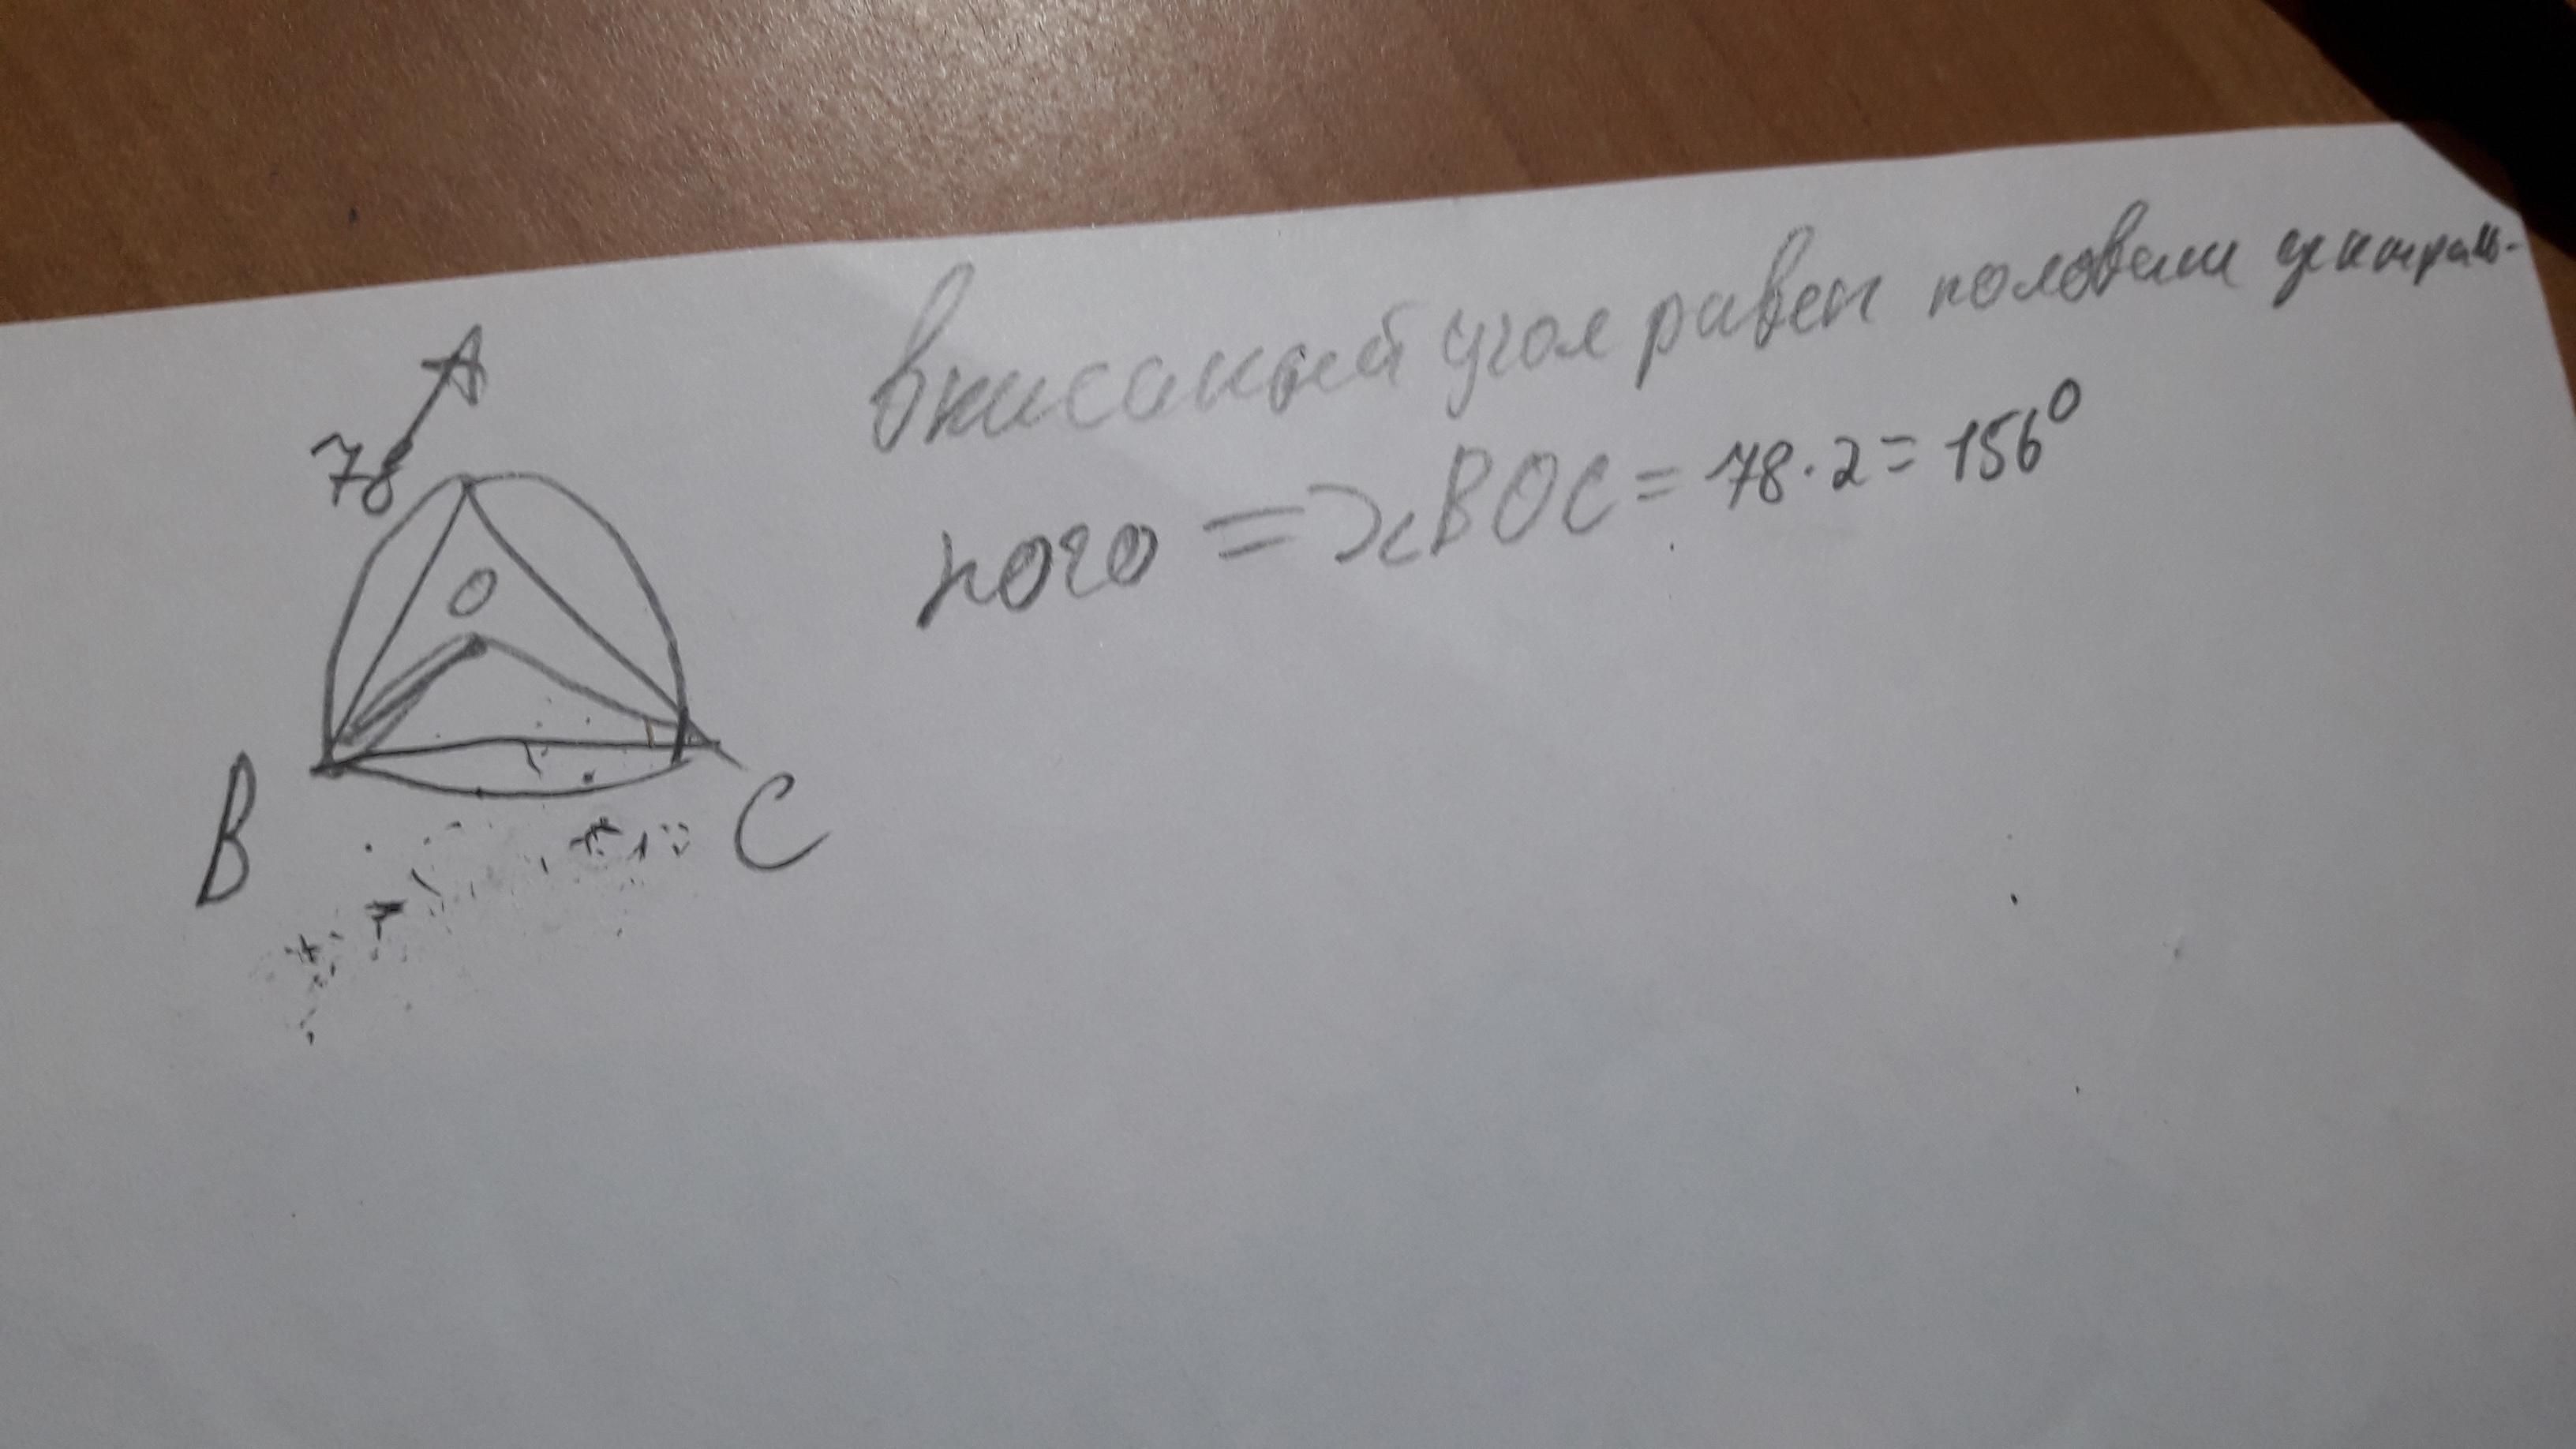 A
78
O
B
C
вписаный угол равен половине централь-
ного => ∠BOC = 78·2 = 156°